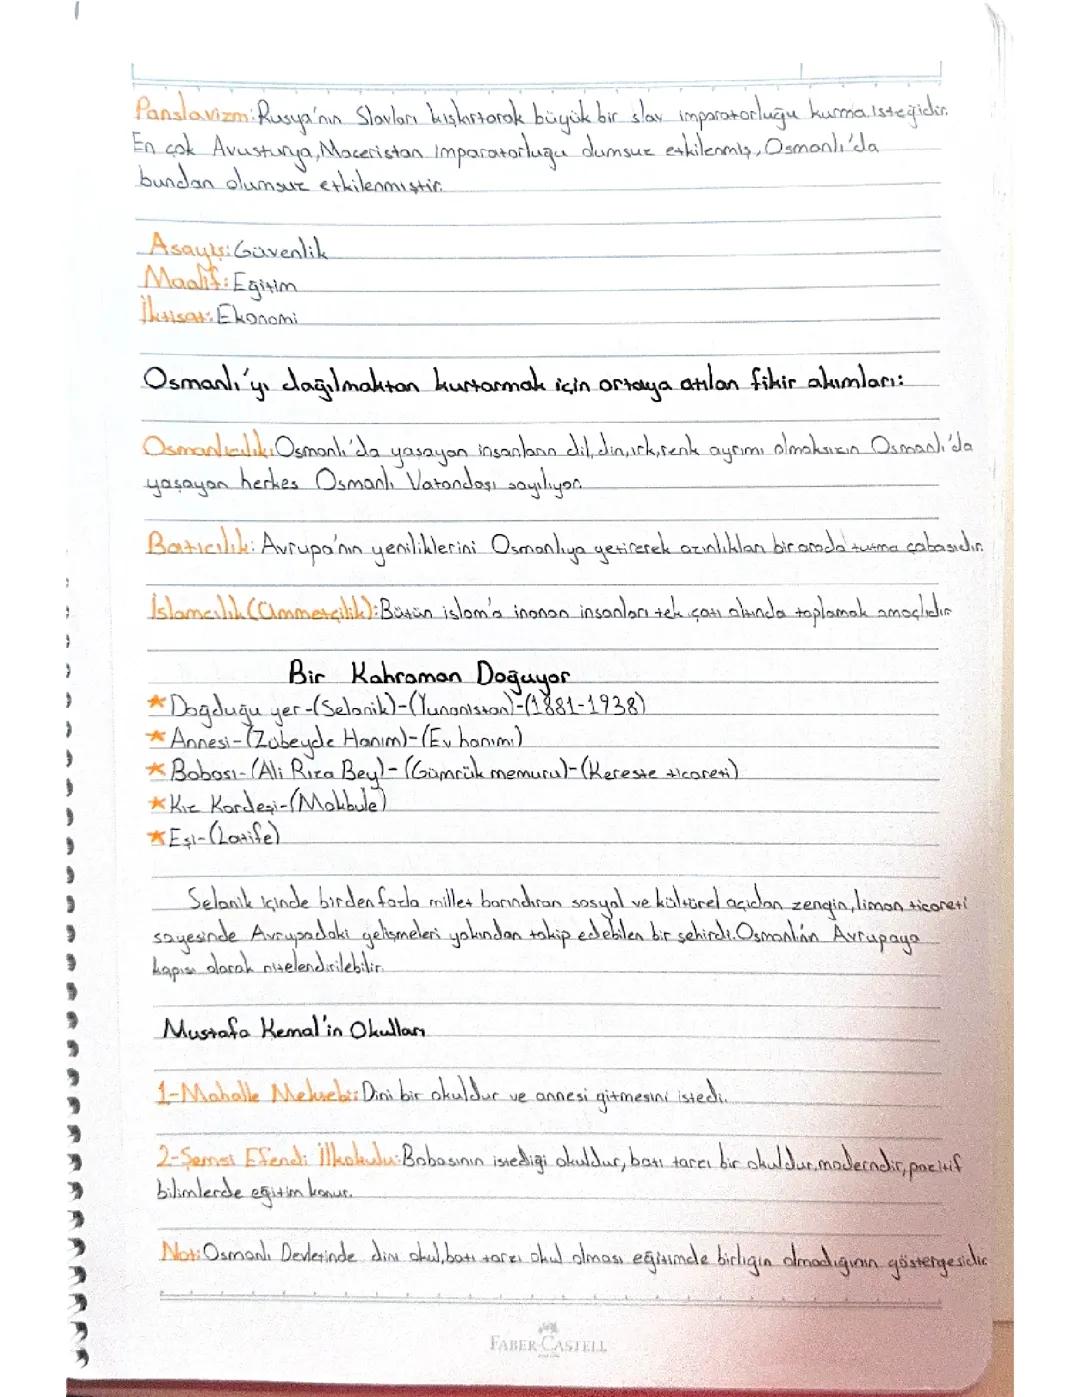 Panslavizm: Rusya'nın Slavları kışkırtarak büyük bir slav imparatorluğu kurma isteğidir.
En çok Avusturya, Maceristan imparatorluğu olumsuz etkilenmiş, Osmanlı'da
bundan olumsuz etkilenmiştir.
Asayiş: Güvenlik
Maalif: Eğitim
İktisat: Ekonomi
Osmanlı'yı dağılmaktan kurtarmak için ortaya atılan fikir akımları:
Osmanlıcılık: Osmanlı'da yaşayan insanların dil, din, ırk, renk ayrımı olmaksızın Osmanlı'da
yaşayan herkes Osmanlı Vatandaşı sayılıyor.
Batıcılık: Avrupa'nın yeniliklerini Osmanlıya getirerek azınlıkları bir arada tutma çabasıdır.
İslamcılık (Ümmetçilik): Bütün islam'a inanan insanları tek çatı altında toplamak amaçlıdır
Bir Kahraman Doğuyor
★ Doğduğu yer-(Selanik)-(Yunanistan)-(1881-1938)
★ Annesi-(Zübeyde Hanım)-(Ev hanımı)
★ Babası-(Ali Rıza Bey)-(Gümrük memuru)-(Kereste ticareti)
★ Kız Kardeşi-(Makbule)
★ Eşi-(Latife)
Selanik içinde birden fazla millet barındıran sosyal ve kültürel açıdan zengin, liman ticareti
sayesinde Avrupadaki gelişmeleri yakından takip edebilen bir şehirdi. Osmanlı'nın Avrupaya
kapısı olarak nitelendirilebilir.
Mustafa Kemal'in Okulları
1-Mahalle Mektebi: Dini bir okuldur ve annesi gitmesini istedi.
2-Şemsi Efendi İlkokulu: Babasının istediği okuldur, batı tarzı bir okuldur, moderndir, pozitif
bilimlerde eğitim konur.
Not: Osmanlı Devletinde dini okul, batı tarzı okul olması eğitimde birliğin olmadığının göstergesidir
FABER-CASTELL